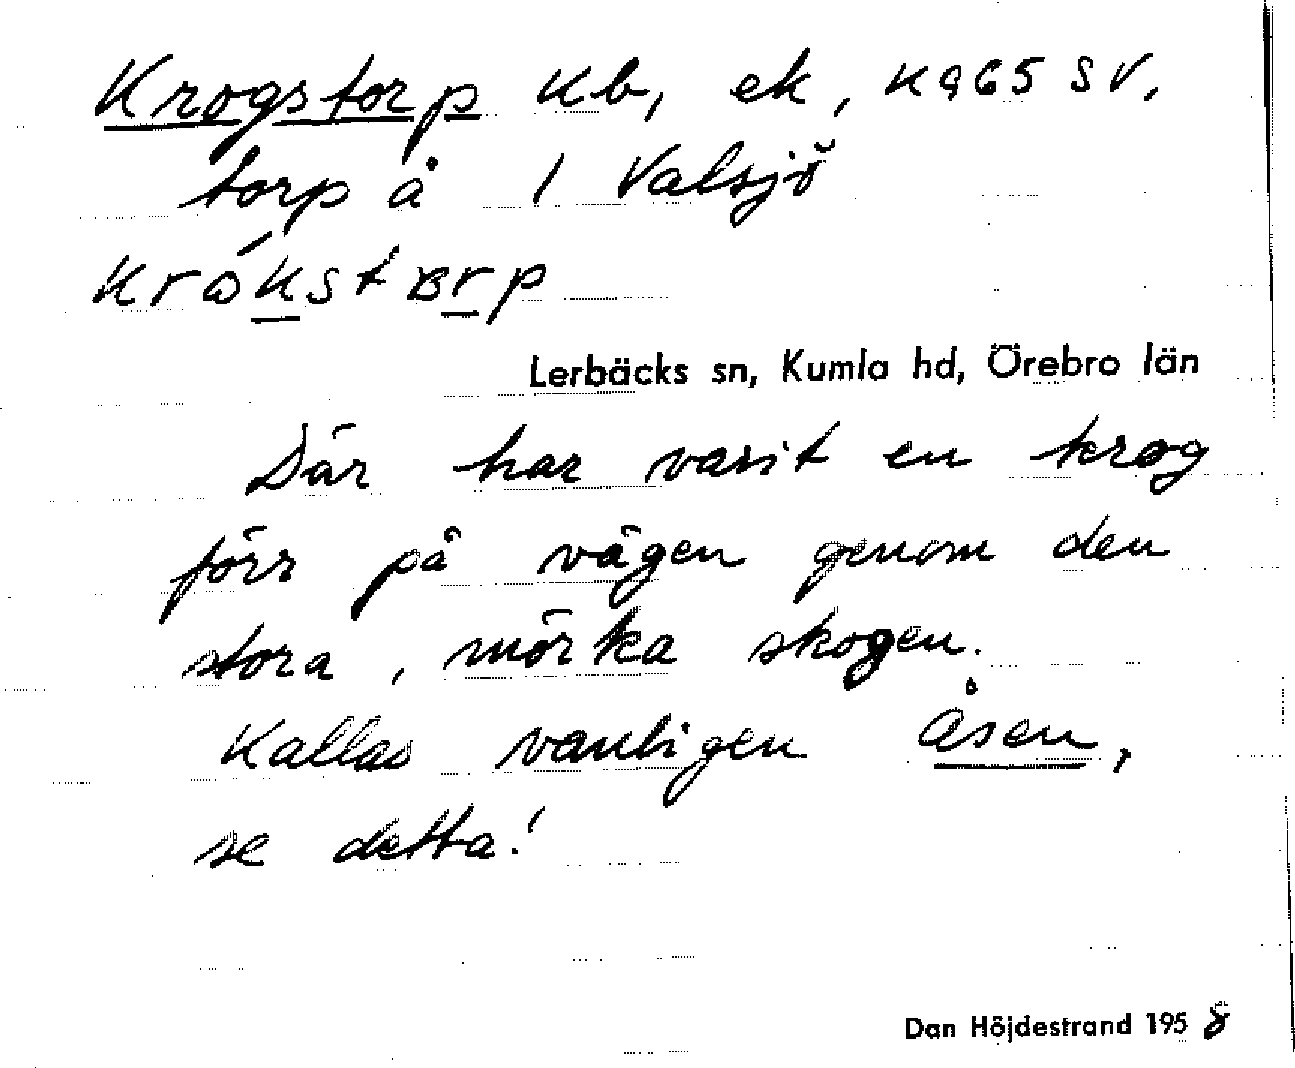 Krogstorp Kb, ek, K965 SV,
torp å 1 Valsjö
Lerbäcks sn, Kumla hd, Örebro län
Där har varit en krog
förr på vägen genom den
stora, mörka skogen.
Kallas vanligen Åsen,
se detta!
Dan Höjdestrand 1958